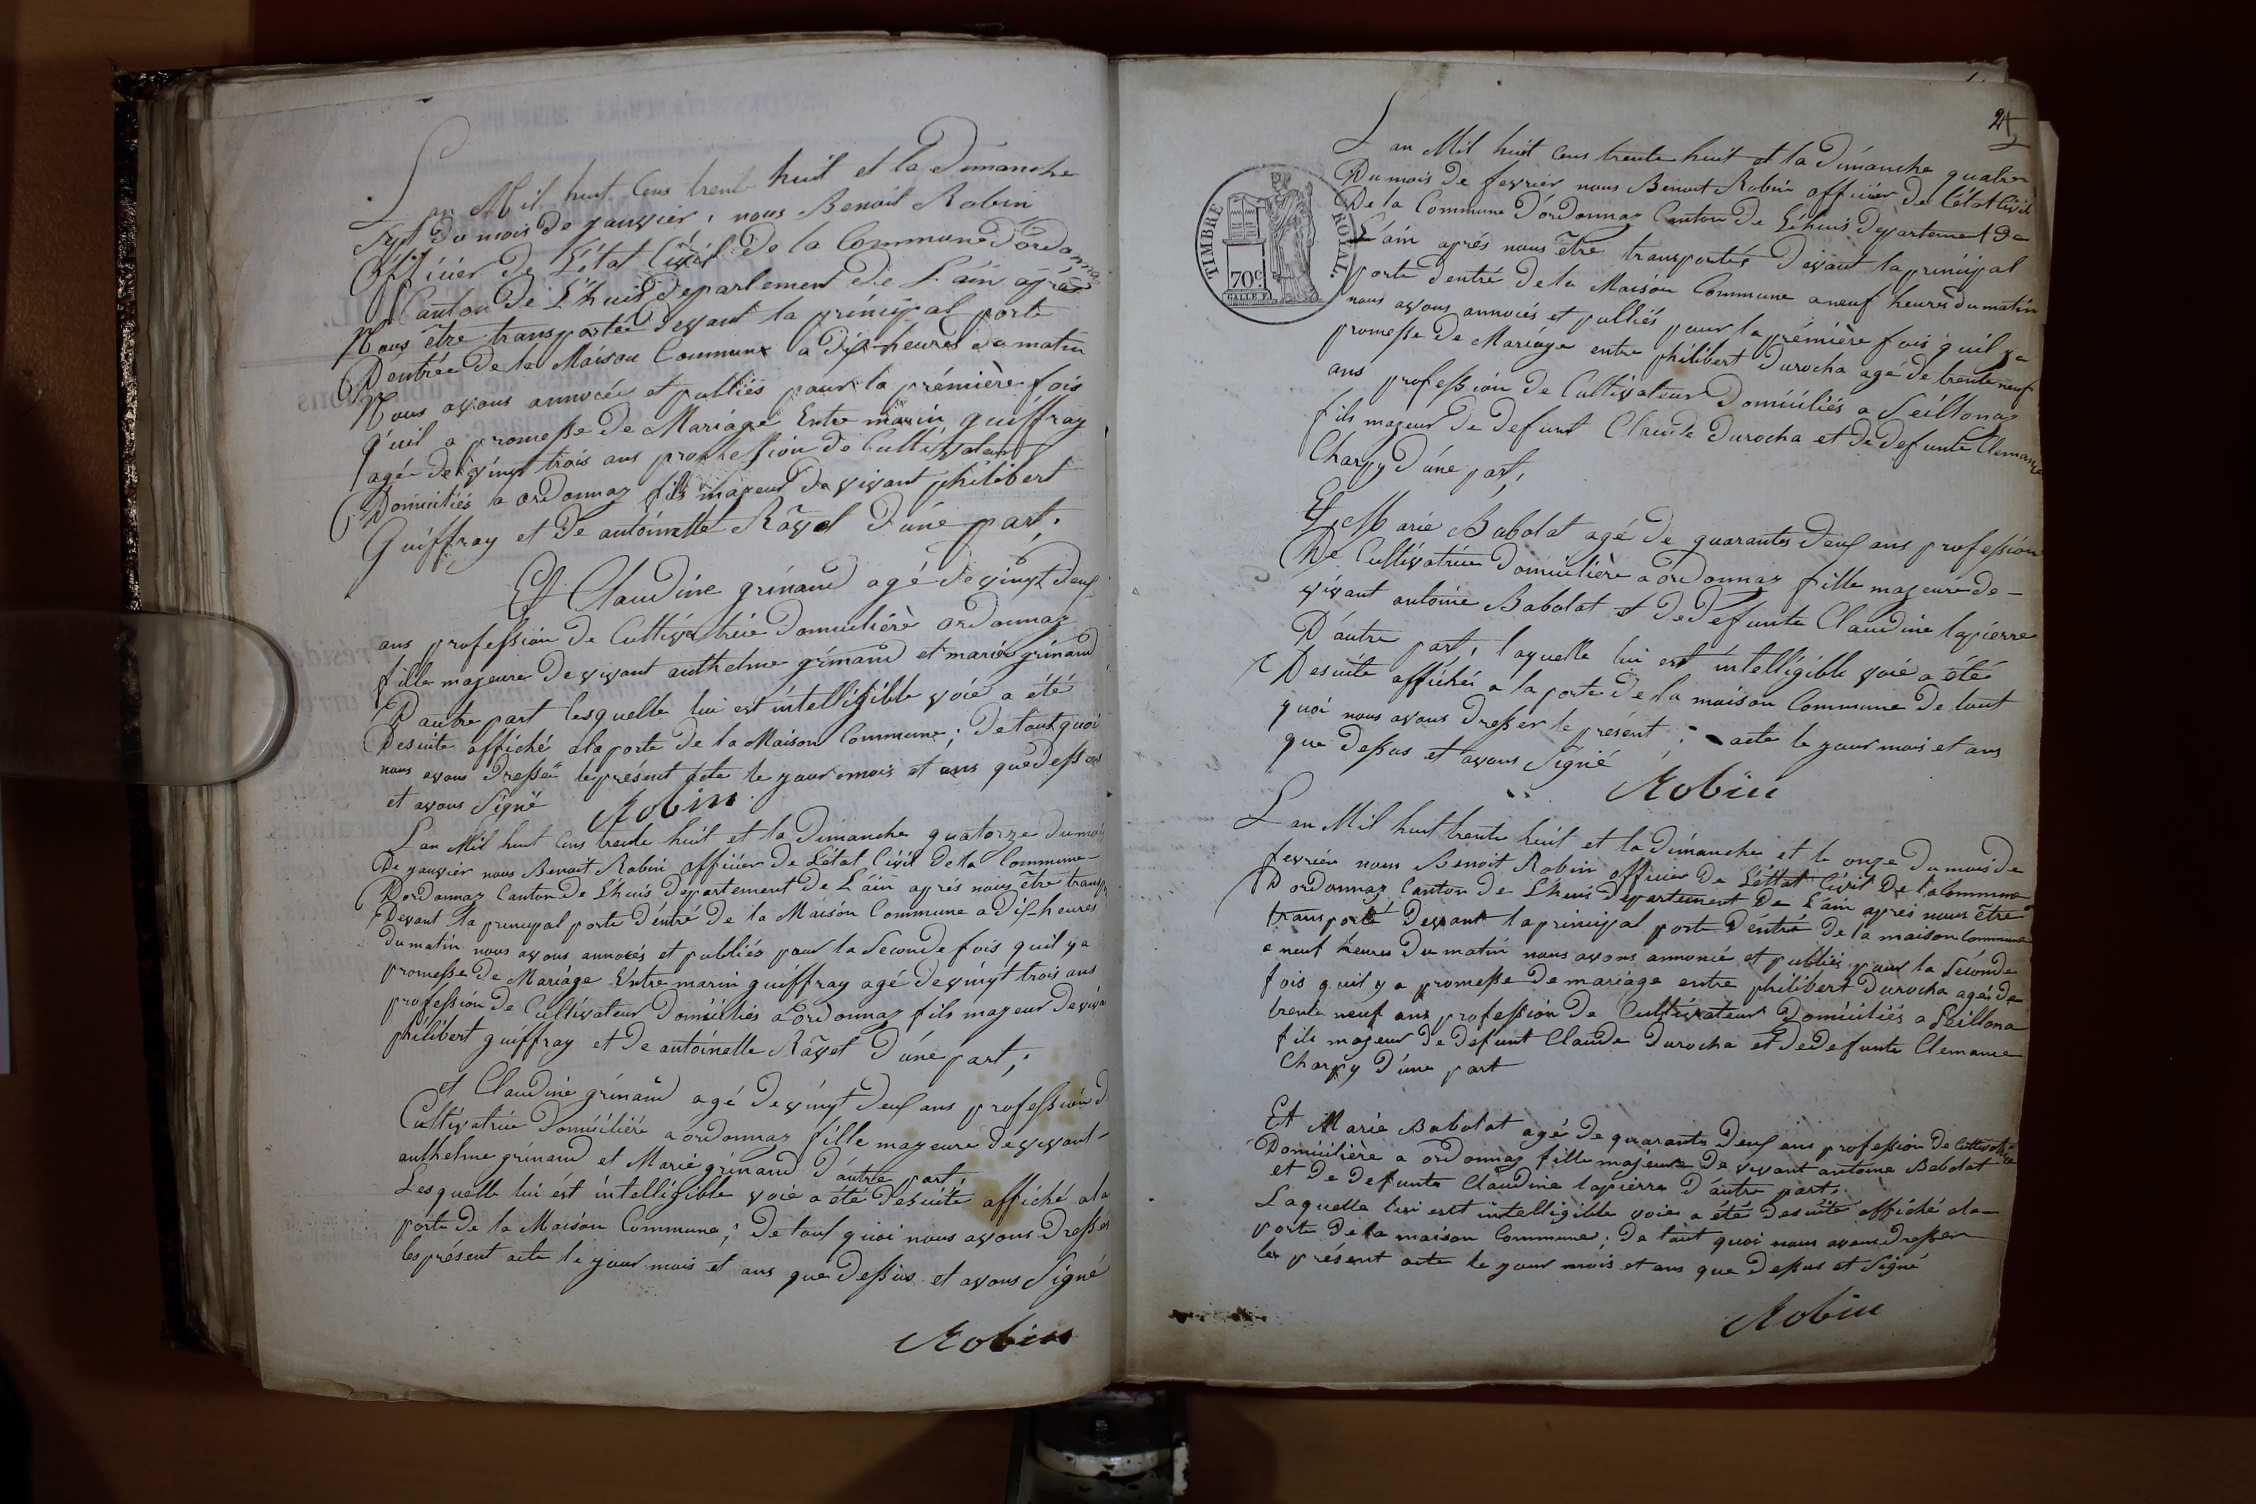 L'an Mil huit Cens trente huit et la Dimanche
Sept du mois de janvier, nous Benoit Robin
Officier De L'état Civil De la Commune D'ordonnaz
Canton De L'huis Departement de L'ain après
Nous être transportée Devant la principal porte
D'entrée De la Maison Commune a Dix heures du matin
Nous avons annocée et publiés pour la première fois
qu'il a promesse De Mariage Entre marin guiffray
agée de vingt trois ans profession de Cultivateur
Domiciliés a ordonnaz fils majeur De vivant philibert
Guiffray et De antoinette Ravet D'une part,
Et Claudine grinand agé De vingt Deux
ans profession De Cultivatrice Domicilière ordonnaz
fille majeure De vivant anthelme grinand et marie grinand
D'autre part lesquelle lui est intelligible voie a été
De suite affiché a la porte De la Maison Commune; De tout quoi
nous avons Dressée le présent acte le jour mois et ans que Dessus
et avons Signé Robin
L'an Mil huit Cens trente huit et la Dimanche quatorze du mois
De janvier nous Benoit Robin officier De L'état Civil De la Commune
D'ordonnaz Canton De L'huis Departement De L'ain après nous être transpr
Devant la principal porte D'entré De la Maison Commune a Dix heures
Du matin nous avons annocés et publiés pour la Seconde fois qu'il y a
promesse De Mariage Entre marin guiffray agé De vingt trois ans
profession De Cultivateur Domiciliés a ordonnaz fils majeur De viva
philibert guiffray et De antoinette Ravet D'une part;
et Claudine grinand agé De vingt Deux ans profession D
Cultivatrice Domicilière a ordonnaz fille majeure De vivant
anthelme grinand et Marie grinand D'autre part,
Lesquelle lui est intelligible voie a été De suite affiché a la
porte De la Maison Commune; De tout quoi nous avons Dressés
les présent acte le jour mois et ans que Dessus et avons Signé
Robin
24
TIMBRE ROYAL.
70 c
L'an Mil huit Cens trente huit et la Dimanche quatre
Du mois De fevrier nous Benoit Robin officier De L'état Civil
De la Commune D'ordonnaz Canton De L'huis Departement De
L'ain après nous être transportés Devant la principal
porte D'entré De la Maison Commune a neuf heures Du matin
nous avons annocés et publiés pour la première fois qu'il y a
promesse De Mariage entre philibert Durocha agé De trente neuf
ans profession De Cultivateur Domiciliés a Seillonaz
fils majeur De defunt Claude Durocha et De defunte Clemance
Charpy D'une part,
Et Marie Babolat agé De quarante Deux ans profession
De Cultivatrice Domicilière a ordonnaz fille majeure De
vivant antoine Babolat et De Defunte Claudine lapierre
D'autre part, laquelle lui est intelligible voie a été
De suite affiché a la porte De la maison Commune De tout
quoi nous avons Dresser le présent; acte le jour mois et ans
que Dessus et avons Signé
Robin
L'an Mil huit trente huit et la Dimanche et le onze Du mois De
fevrier nous Benoit Robin officier De L'éttat Civil De la Commune
D'ordonnaz Canton De L'huis Departement De L'ain après nous être
transporté Devant la principal porte D'entré De la maison Commune
a neuf heures Du matin nous avons annoncé et publiés pour la Séconde
fois qu'il y a promesse De mariage entre philibert Durocha agés De
trente neuf ans profession De Cultivateur Domiciliés a Seillona
fils majeur De Defunt Claude Durocha et De Defunte Clemance
Charpy D'une part
Et Marie Babolat agé De quarante Deux ans profession De Cultivatrice
Domicilière a ordonnaz fille majeure De vivant antoine Babolat
et De Defunte Claudine lapierre D'autre part,
Laquelle lui estt intelligible voie a été De suite affiché a la
porte De la maison Commune; De tout quoi nous avons Dresser
les présent acte le jour mois et ans que Dessus et Signé
Robin